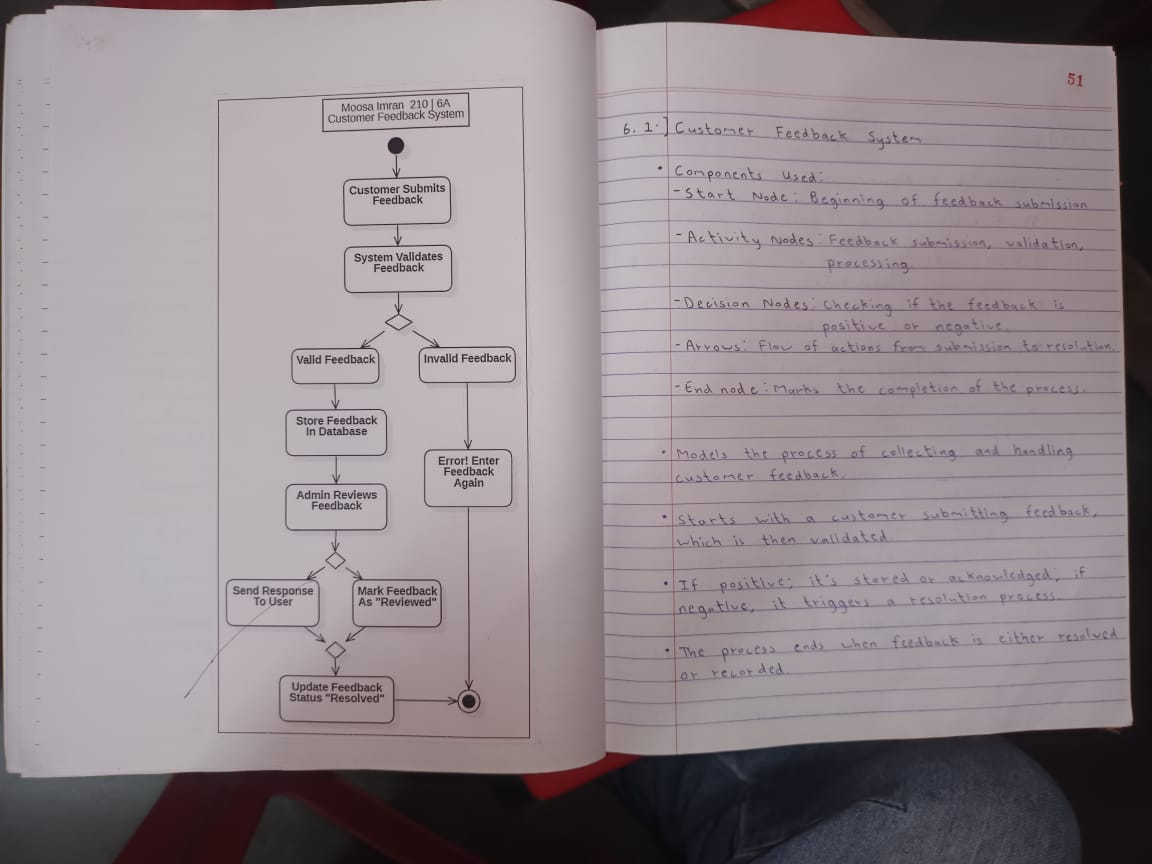 Moosa Imran 210 | 6A
Customer Feedback System
Customer Submits
Feedback
System Validates
Feedback
Valid Feedback
Invalid Feedback
Store Feedback
In Database
Error! Enter
Feedback
Again
Admin Reviews
Feedback
Send Response
To User
Mark Feedback
As "Reviewed"
Update Feedback
Status "Resolved"
51
6. 1.] Customer Feedback System
• Components used:
- Start Node: Beginning of feedback submission
- Activity Nodes: Feedback submission, validation,
processing.
- Decision Nodes: Checking if the feedback is
positive or negative.
- Arrows: Flow of actions from submission to resolution.
- End node: Marks the completion of the process.
• Models the process of collecting and handling
customer feedback.
• Starts with a customer submitting feedback,
which is then validated.
• If positive; it's stored or acknowledged; if
negative, it triggers a resolution process.
• The process ends when feedback is either resolved
or recorded.